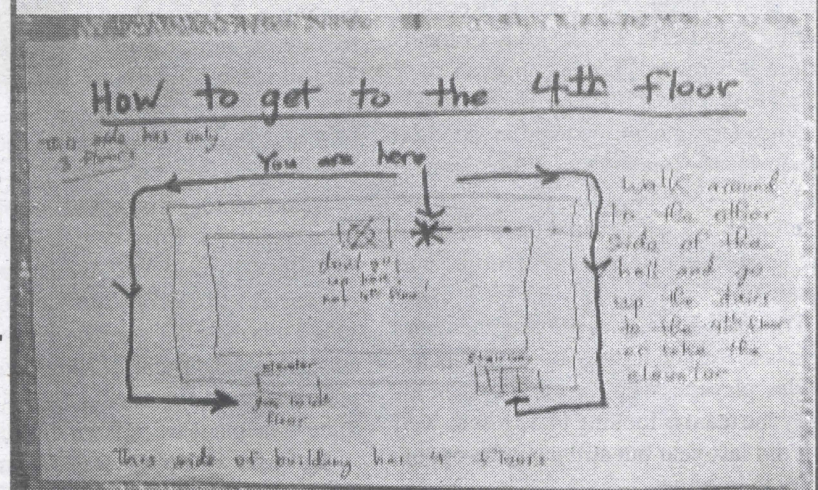 How to get to the 4th floor
This side has only
3 floors
You are here
don't go
up here,
not 4th floor!
Walk around
to the other
side of the
hall and go
up the stairs
to the 4th floor
or take the
elevator
Elevator
goes to 4th
floor
Stairway
This side of building has 4 floors